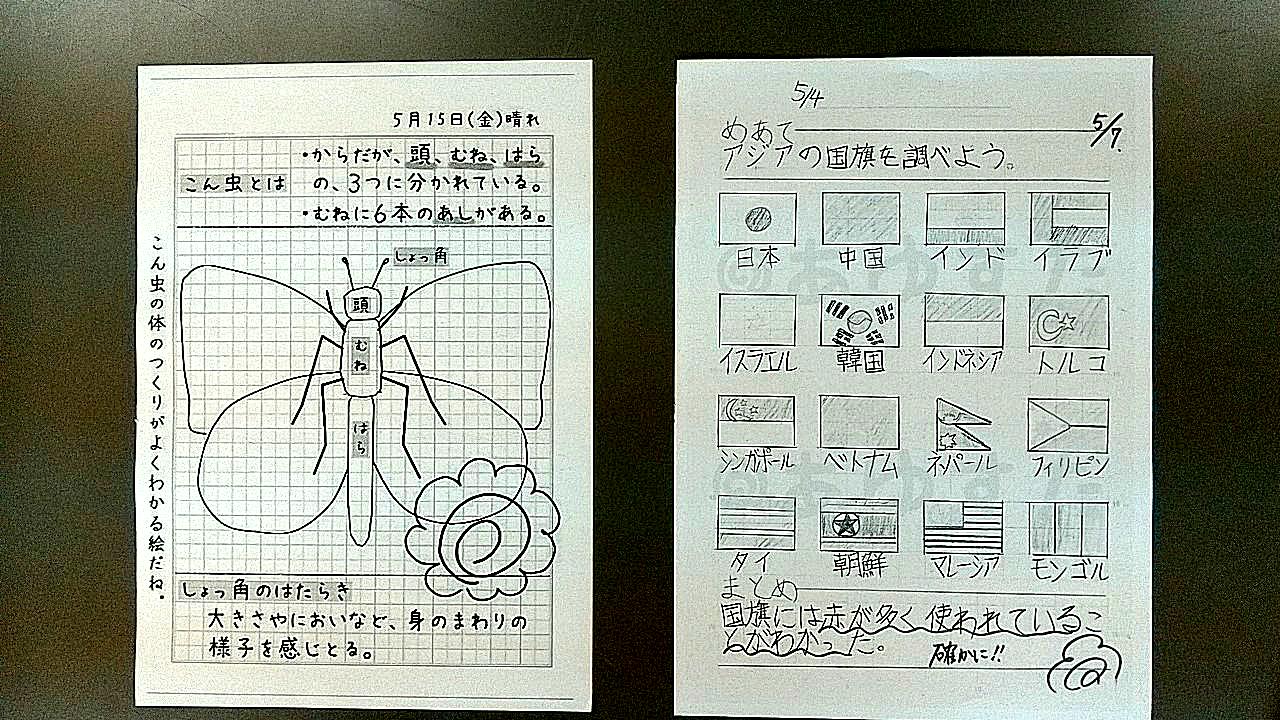 5月15日(金)晴れ
・からだが、頭、むね、はら
こん虫とは の、3つに分かれている。
・むねに6本のあしがある。
しょっ角
頭
むね
はら
こん虫の体のつくりがよくわかる絵だね。
しょっ角のはたらき
大きさやにおいなど、身のまわりの
様子を感じとる。
5/4
5/7.
めあて
アジアの国旗を調べよう。
日本 中国 インド イラブ
イスラエル 韓国 インドネシア トルコ
シンガポール ベトナム ネパール フィリピン
タイ 朝鮮 マレーシア モンゴル
まとめ
国旗には赤が多く使われているこ
とがわかった。
確かに!!